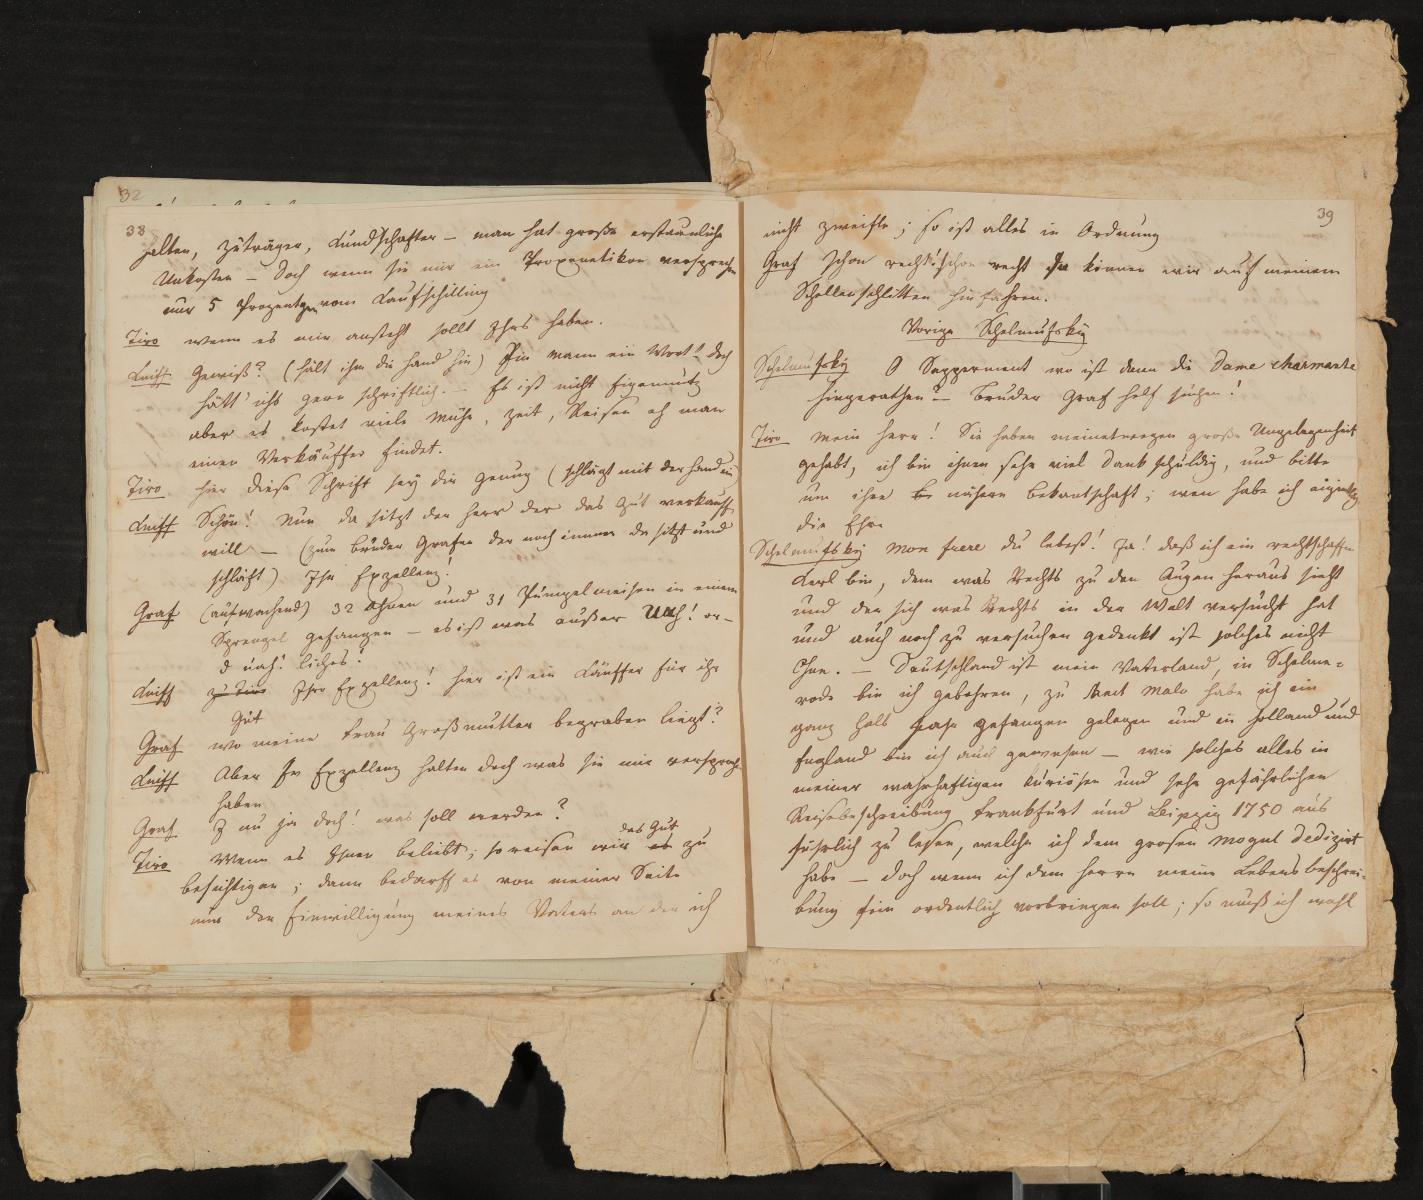 32
38
halten, Zuträger, Kundschafter – man hat große erstaunliche
Unkosten – doch wenn Sie mir ein Proxenetikon versprechen
nur 5 Prozentgen vom Kaufschilling
Tiro wenn es mir ansteht sollt Ihrs haben.
Kniff Gewiß? (hält ihm die Hand hin) Ein Mann ein Wort! doch
hätt' ichs gern schriftlich. – Es ist nicht Eigennutz
aber es kostet viele Mühe, Zeit, Reisen eh man
einen Verkäuffer findet.
Tiro hier diese Schrift sey dir genug (schlägt mit der Hand ein)
Kniff Schön! Nun da sitzt der Herr der das Gut verkauffen
will – (zum Bruder Grafen der noch immer da sitzt und
schläft) Ihr Exzellenz!
Graf (aufwachend) 32 Ahnen und 31 Pümpelmeisen in einem
Sprengel gefangen – es ist was außer Uah! or–
d uah! liches!
Kniff zu Tiro Ihro Exzellenz! hier ist ein Käuffer für ihr
Gut
Graf wo meine Frau Großmutter begraben liegt?
Kniff Aber Ihr Exzellenz halten doch was Sie mir versprochen
haben
Graf I nu ja doch! was soll werden?
Tiro Wenn es Ihnen beliebt; so reisen wir es das Gut zu
besichtigen; dann bedarff es von meiner Seite
nur der Einwilligung meines Vaters an der ich
39
nicht zweifle; so ist alles in Ordnung
Graf Schon recht! schon recht da können wir auf meinem
Schellenschlitten hinfahren.
Vorige Schelmufsky
Schelmufsky O Sapperment wo ist denn die Dame charmante
hingerathen? – Bruder Graf helf suchen!
Tiro Mein Herr! Sie haben meinetwegen große Ungelegenheit
gehabt, ich bin ihnen sehr viel Dank schuldig, und bitte
um ihre nähere Bekantschaft; wen habe ich eigentlich
die Ehre
Schelmufsky Mon frere du lebest! Ja! daß ich ein rechtschaffner
Kerl bin, dem was Rechts zu den Augen heraus sieht
und der sich was Rechts in der Welt versucht hat
und auch noch zu versuchen gedenkt ist solches nicht
Ohne. – Deutschland ist mein Vaterland, in Schelme=
rode bin ich gebohren, zu Sanct Malo habe ich ein
ganz halb Jahr gefangen gelegen und in Holland und
England bin ich auch gewesen – wie solches alles in
meiner wahrhaftigen kuriösen und sehr gefährlichen
Reisebeschreibung Frankfurt und Leipzig 1750 aus
führlich zu lesen, welche ich dem grosen Mogul Dedizirt
habe – doch wenn ich dem Herrn meine Lebensbeschrei=
bung fein ordentlich vorbringen soll; so muß ich wohl